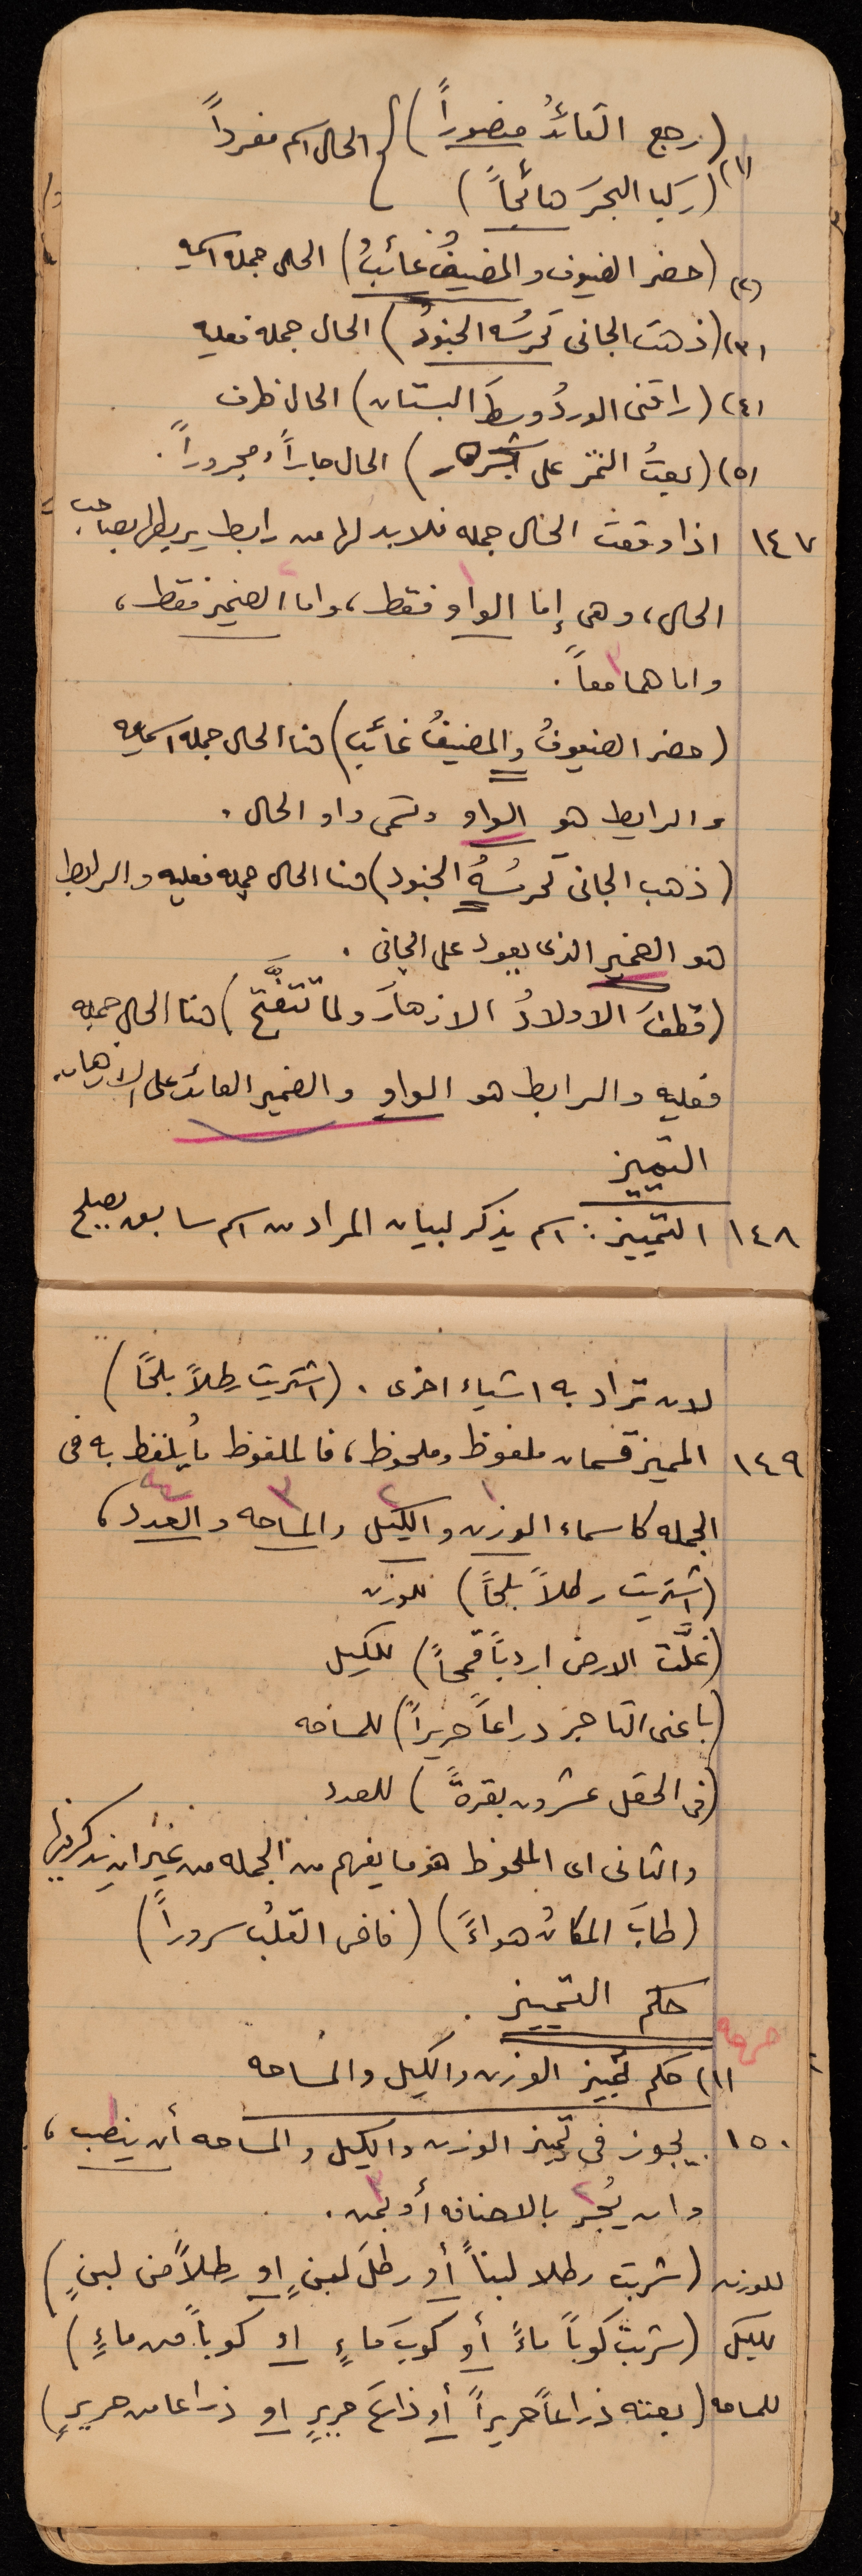 (رجع القائدُ منصوراً) } الحال اسم مفرداً
(١) (ركبا البحرَ هائجاً)
(٢) (حضر الضيوف والمضيفُ غائبُ) الحال جملة اسميه
(٣) (ذهب الجانى تحرسُه الجنودُ) الحال جمله فعليه
(٤) (راقنى الوردُ وسطَ البستان) الحال ظرف
(٥) (بعتُ الثمر على شجره) الحال جاراً ومجروراً.
١٤٧ اذا وقعت الحال جمله فلابد لها من رابط يربطها بصاحب
الحال، وهى إما الواو فقط، واما الضمير فقط،
واما هما معاً.
(حضر الضيوفُ والمضيفُ غائب) هنا الحال جمله اسميه
والرابط هو الواو وتسمى واو الحال.
(ذهب الجانى تحرسُهُ الجنود) هنا الحال جمله فعليه والرابط
هو الضمير الذى يعود على الجانى.
(قطفَ الاولادُ الازهارَ ولما تتفتَّح) هنا الحال جمله
فعليه والرابط هو الواو والضمير العائد على الازهار.
التمييز
١٤٨ التمييز: اسم يذكر لبيان المراد من اسم سابق يصلح
لان تراد به اشياء اخرى. (اشتريت رطلاً بلحًا)
١٤٩ المميز قسمان ملفوظ وملحوظ، فالملفوظ ما يُلفظ به فى
الجمله كاسماء الوزن والكيل والمساحه والعدد،
(اشتريت رطلاً بلحاً) للوزن
(غلَّت الارض اردباً قمحاً) للكيل
(باعنى التاجر ذراعاً حريراً) للمساحه
(فى الحقل عشرون بقرةً) للعدد
والثانى اى الملحوظ هو ما يفهم من الجمله من غير ان يذكر فيها
(طابَ المكانُ هواءً) (فاض القلبُ سروراً)
حكم التمييز.
(١) حكم تمييز الوزن والكيل والمساحه
١٥٠ يجوز فى تمييز الوزن والكيل والمساحه أن ينصب،
وان يُجر بالاضافه أو بمن.
للوزن (شربت رطلا لبناً أو رطلَ لبنٍ او رطلاً من لبنٍ)
للكيل (شربتُ كوباً ماءً أو كوبَ ماءٍ او كوباً من ماءٍ)
للمساحه (بعته ذراعاً حريراً أو ذراعَ حريرٍ او ذراعا من حريرٍ)